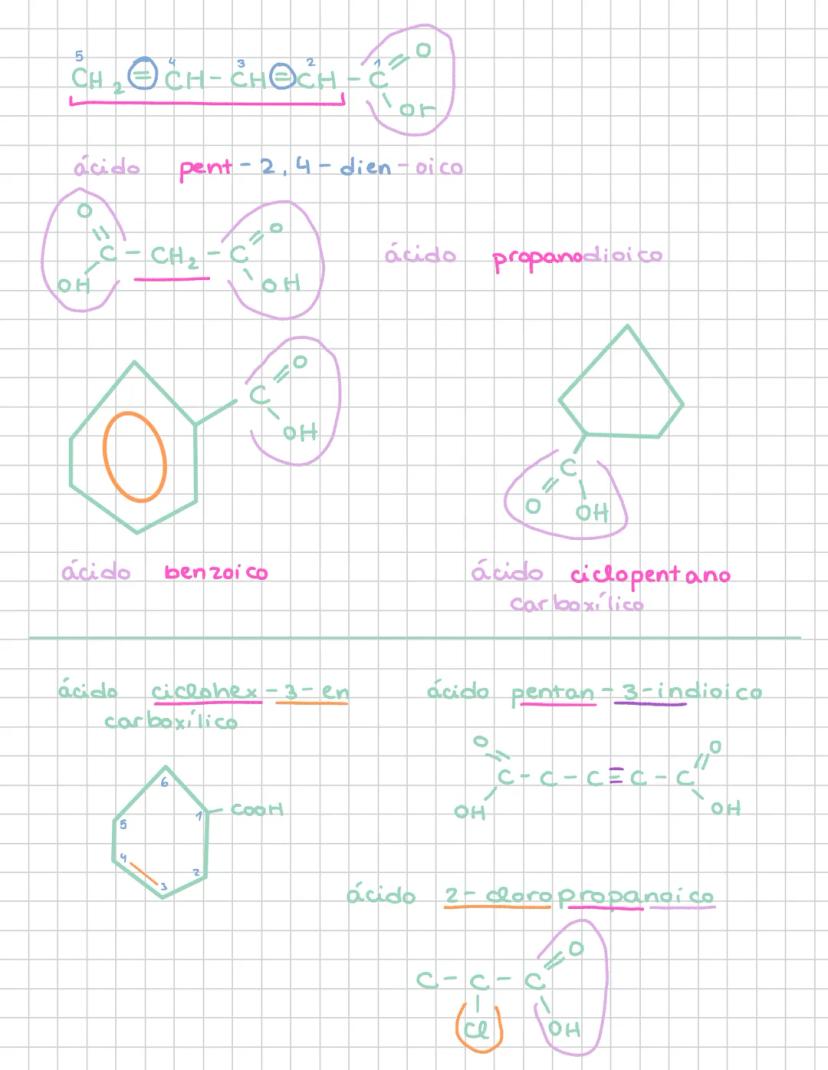 5 4 3 2 1
CH2 = CH - CH = CH - C = O
Or
ácido pent-2,4-dien-oico
O O
C - CH2 - C ácido propanodioico
OH OH
C O
OH
C
O OH
ácido benzoico ácido ciclopentano
carboxílico
ácido ciclohex-3-en ácido pentan-3-indioico
carboxílico
O O
C - C - C ≡ C - C
OH OH
6
1 - COOH
5
4 2
3
ácido 2-cloropropanoico
C - C - C = O
Cl OH